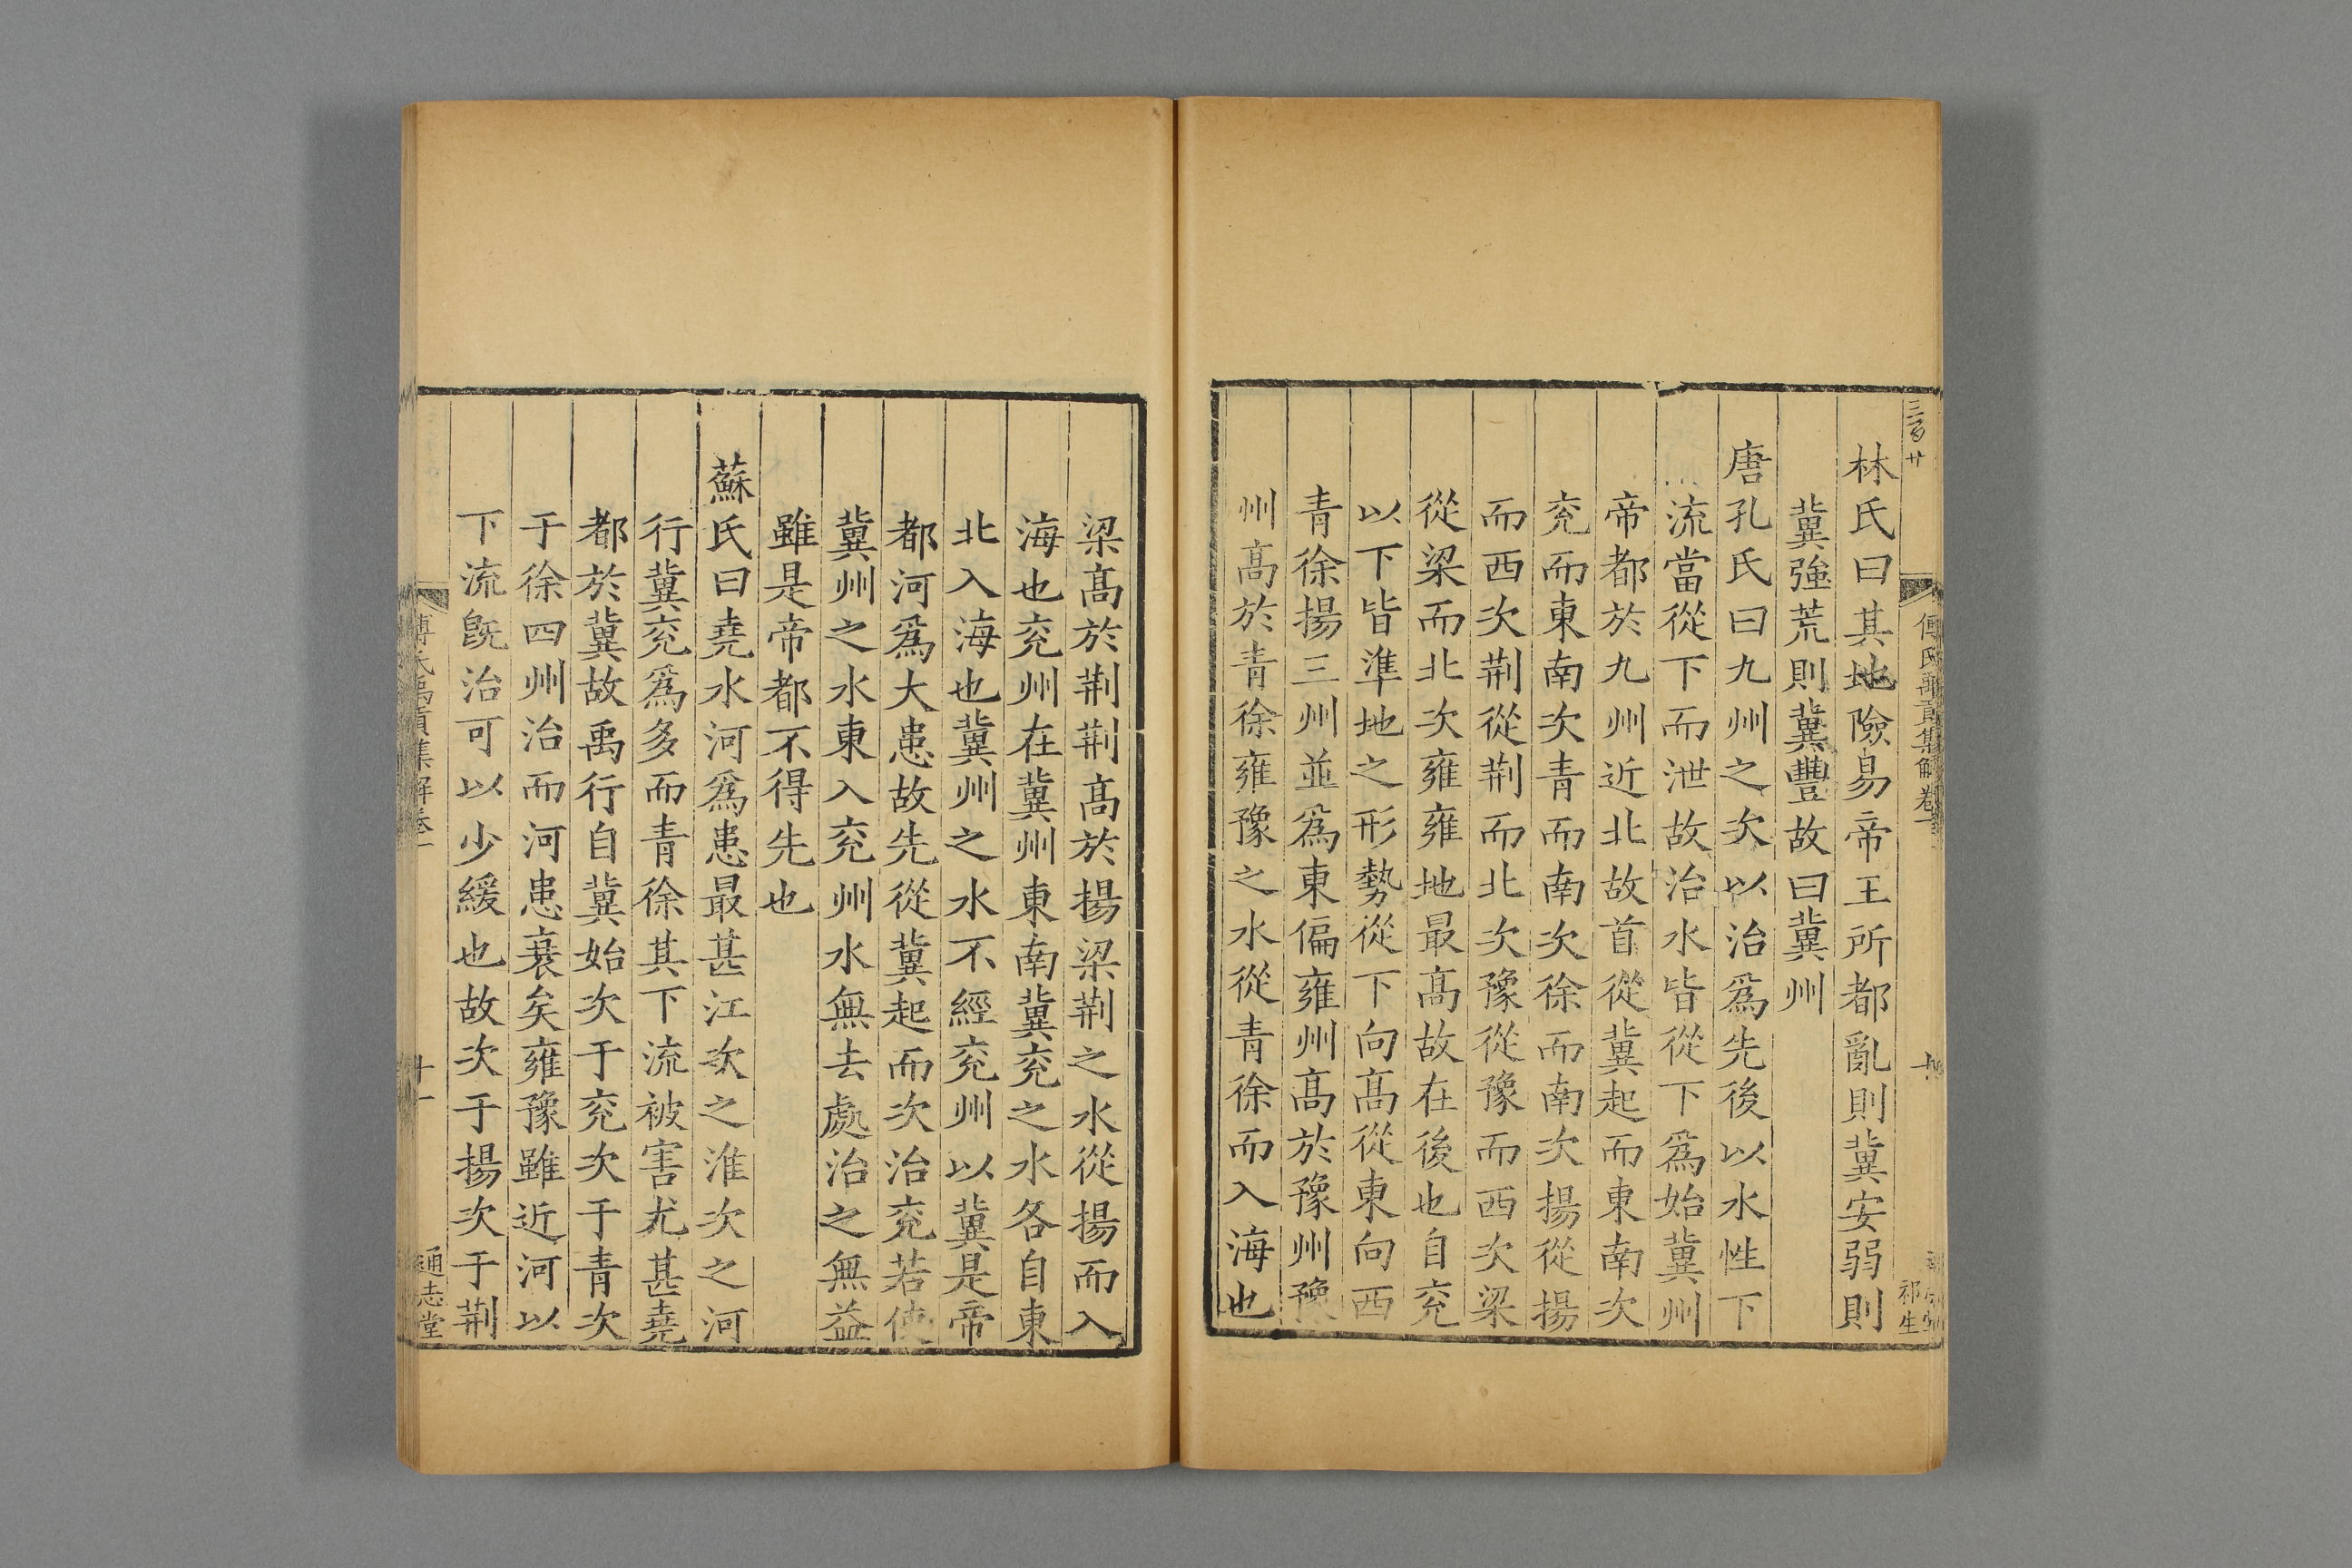 三百廿
林氏曰其地險易帝王所都亂則冀安弱則
冀強荒則冀豐故曰冀州
唐孔氏曰九州之次以治爲先後以水性下
流當從下而泄故治水皆從下爲始冀州
帝都於九州近北故首從冀起而東南次
兖而東南次青而南次徐而南次揚從揚
而西次荆從荆而北次豫從豫而西次梁
從梁而北次雍雍地最髙故在後也自兖
以下皆準地之形勢從下向髙從東向西
青徐揚三州並爲東偏雍州髙於豫州豫
州髙於青徐雍豫之水從青徐而入海也
傅氏禹貢集解卷一
祁生
梁髙於荆荆髙於揚梁荆之水從揚而入
海也兖州在冀州東南冀兖之水各自東
北入海也冀州之水不經兖州以冀是帝
都河爲大患故先從冀起而次治兖若使
冀州之水東入兖州水無去處治之無益
雖是帝都不得先也
蘇氏曰堯水河爲患最甚江次之淮次之河
行冀兖爲多而青徐其下流被害尤甚堯
都於冀故禹行自冀始次于兖次于青次
于徐四州治而河患衰矣雍豫雖近河以
下流旣治可以少緩也故次于揚次于荆
傅氏禹貢集解卷一
十一
通志堂